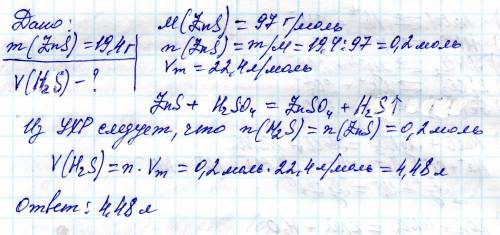 Дано:
m(ZnS)=19,4г
V(H₂S)-?
M(ZnS)=97 г/моль
n(ZnS)=m/M=19,4:97=0,2моль
Vm=22,4л/моль
ZnS + H₂SO₄ = ZnSO₄ + H₂S↑
Из УХР следует, что n(H₂S)=n(ZnS)=0,2моль
V(H₂S)=n·Vm=0,2моль·22,4л/моль=4,48л
Ответ: 4,48л